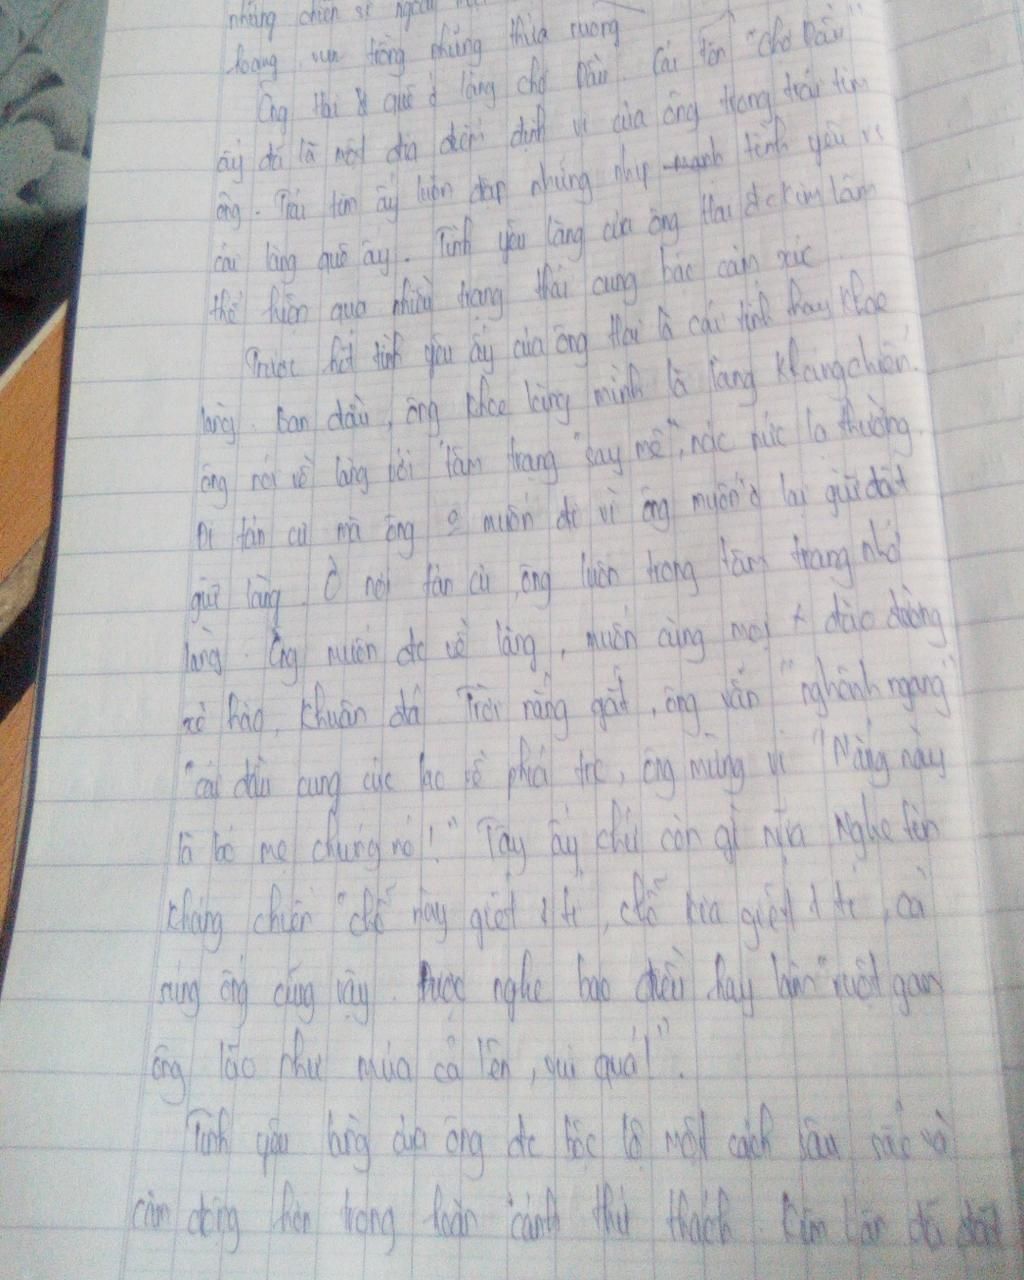 những chiến sĩ ngoài
hoang, vun trồng những thửa ruộng
Ông Hai quê ở làng chợ Dầu. Cái tên "chợ Dầu"
ấy đã là một địa điểm định vị của ông trong trái tim
ông. Trái tim ấy luôn đập những nhịp tình yêu vs
cái làng quê ấy. Tình yêu làng của ông Hai đc Kim Lân
thể hiện qua nhiều trạng thái cung bậc cảm xúc
Trước hết tình yêu ấy của ông Hai là cái tính hay khoe
làng. Ban đầu, ông khoe làng mình là làng kháng chiến.
ông nói về làng bởi "tâm trạng "say mê", náo nức lạ thường.
Đi tản cư mà ông o muốn đi vì ông muốn ở lại giữ đất
giữ làng. Ở nơi tản cư, ông luôn trong tâm trạng nhớ
làng. Ông muốn đc về làng, muốn cùng mọi đào đường
xẻ hào, khuân đá. Trời nắng gắt, ông vẫn "nghênh ngang"
"cái đầu cung cúc lao về phía trc, ông mừng vì "Nắng này
là bỏ mẹ chúng nó!" Tây ấy chứ còn gì nữa Nghe tin
kháng chiến "chỗ này giết 1 tí, chỗ kia giết 1 tí, cả
súng ống cũng vậy. Được nghe bao điều hay làm "ruột gan
ông lão như múa cả lên, vui quá!".
Tình yêu làng của ông đc bộc lộ một cách sâu sắc và
cảm động hơn trong hoàn cảnh thử thách. Kim Lân đã đặt